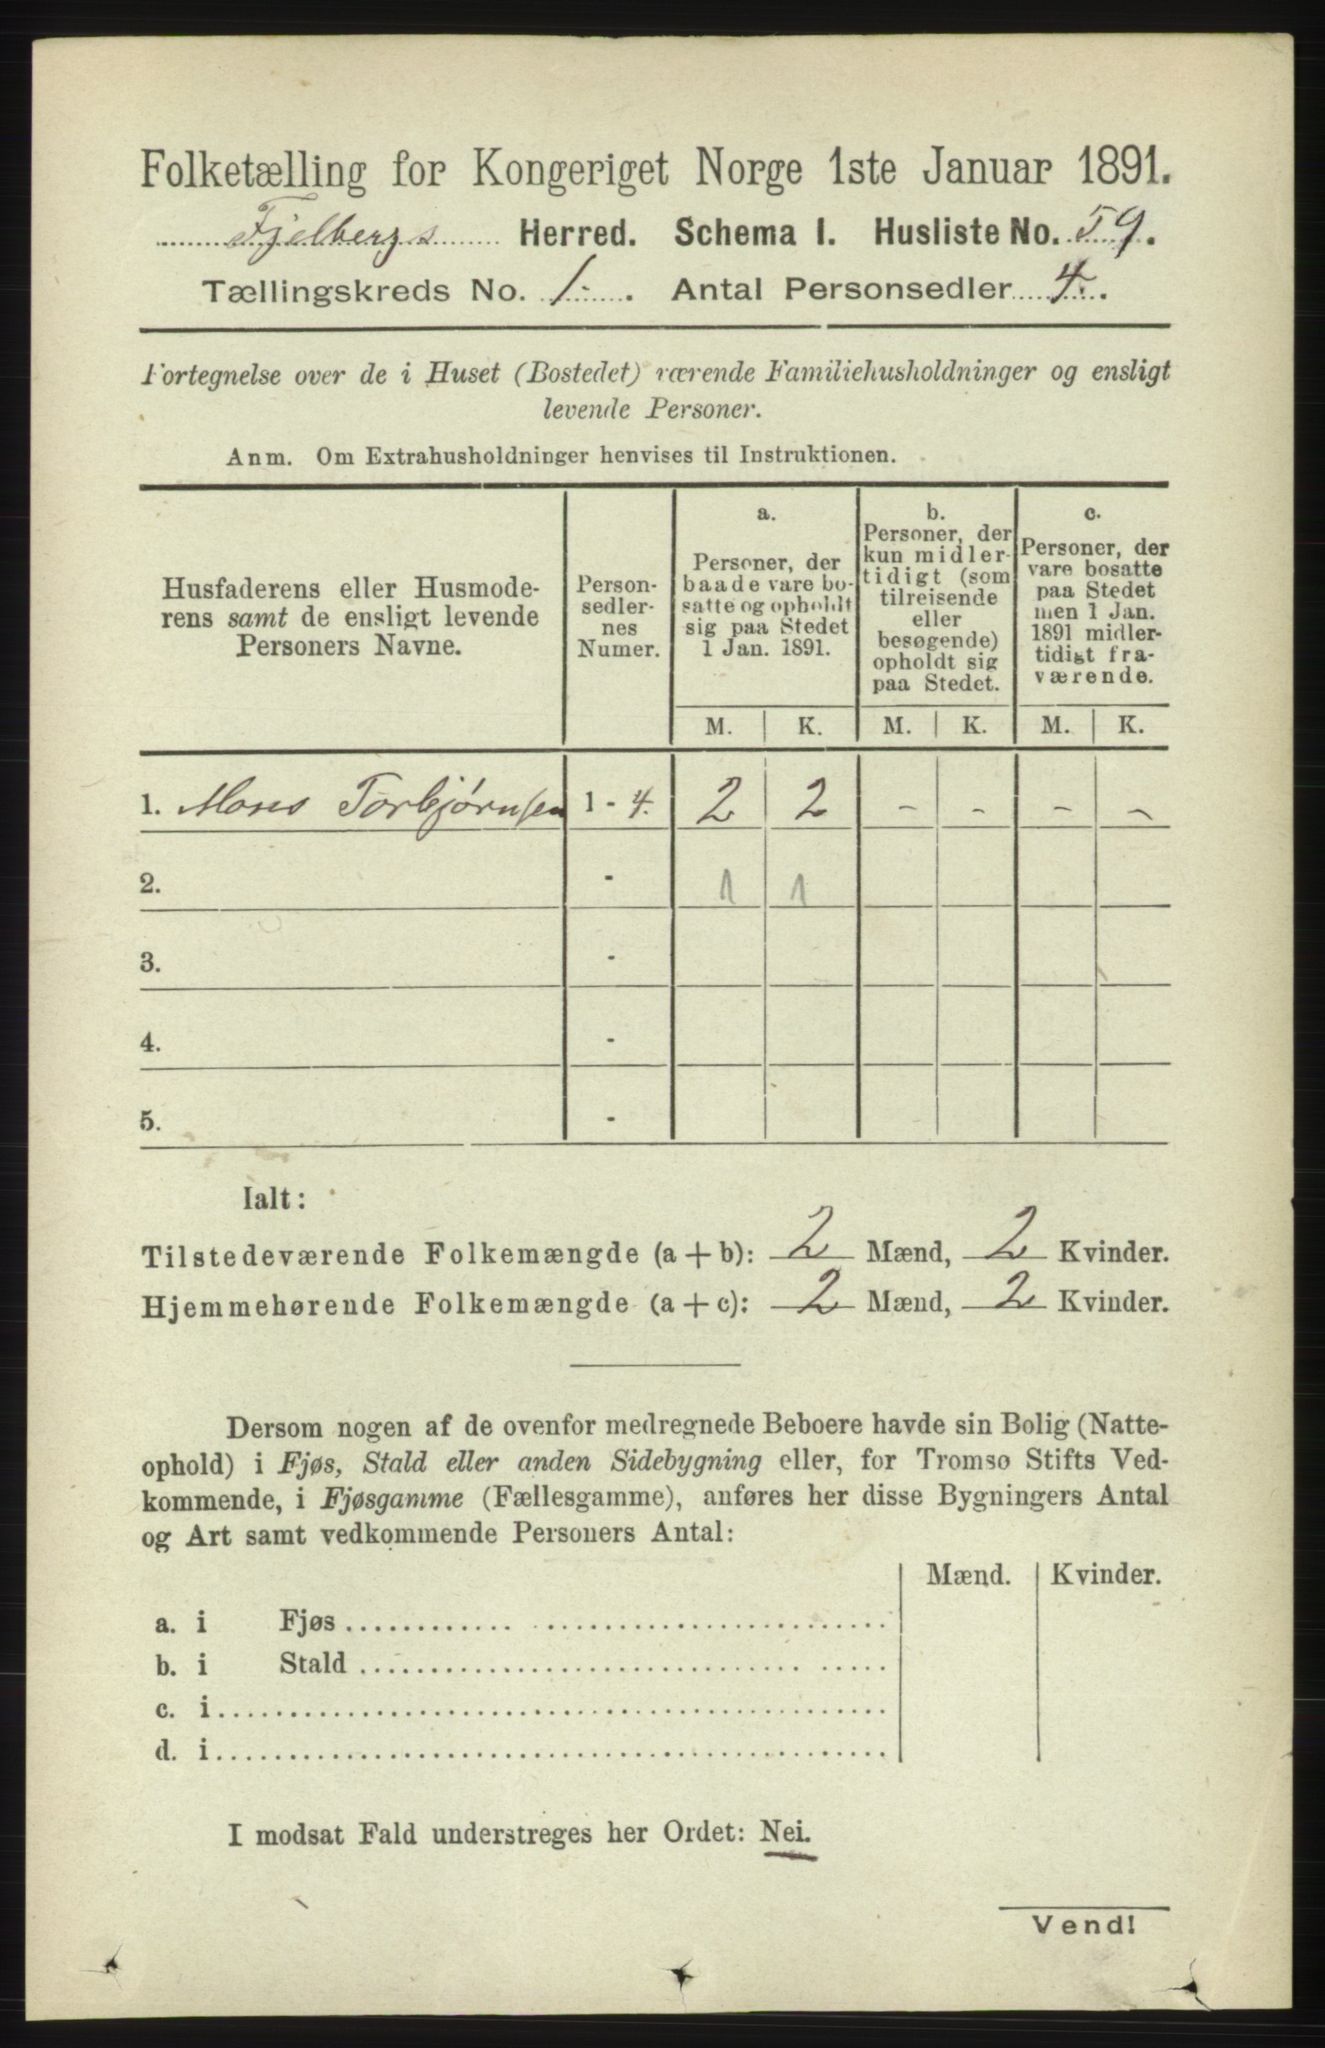 Folketælling for Kongeriget Norge 1ste Januar 1891.
Fjelbergs Herred. Schema I. Husliste No. 59.
Tællingskreds No. 1. Antal Personsedler 4.
Fortegnelse over de i Huset (Bostedet) værende Familiehusholdninger og ensligt
levende Personer.
Anm. Om Extrahusholdninger henvises til Instruktionen.
Husfaderens eller Husmode-
rens samt de ensligt levende
Personers Navne.
Person-
sedler-
nes
Numer.
a.
Personer, der
baade vare bo-
satte og opholdt
sig paa Stedet
1 Jan. 1891.
b.
Personer, der
kun midler-
tidigt (som
tilreisende
eller
besøgende)
opholdt sig
paa Stedet.
c.
Personer, der
vare bosatte
paa Stedet
men 1 Jan.
1891 midler-
tidigt fra-
værende.
M. K. M. K. M. K.
1. Moses Torbjørnsen 1 - 4. 2 2 - - - -
2. - 1 1
3. -
4. -
5. -
Ialt:
Tilstedeværende Folkemængde (a + b): 2 Mænd, 2 Kvinder.
Hjemmehørende Folkemængde (a + c): 2 Mænd, 2 Kvinder.
Dersom nogen af de ovenfor medregnede Beboere havde sin Bolig (Natte-
ophold) i Fjøs, Stald eller anden Sidebygning eller, for Tromsø Stifts Ved-
kommende, i Fjøsgamme (Fællesgamme), anføres her disse Bygningers Antal
og Art samt vedkommende Personers Antal:
Mænd. Kvinder.
a. i Fjøs
b. i Stald
c. i
d. i
I modsat Fald understreges her Ordet: Nei.
Vend!